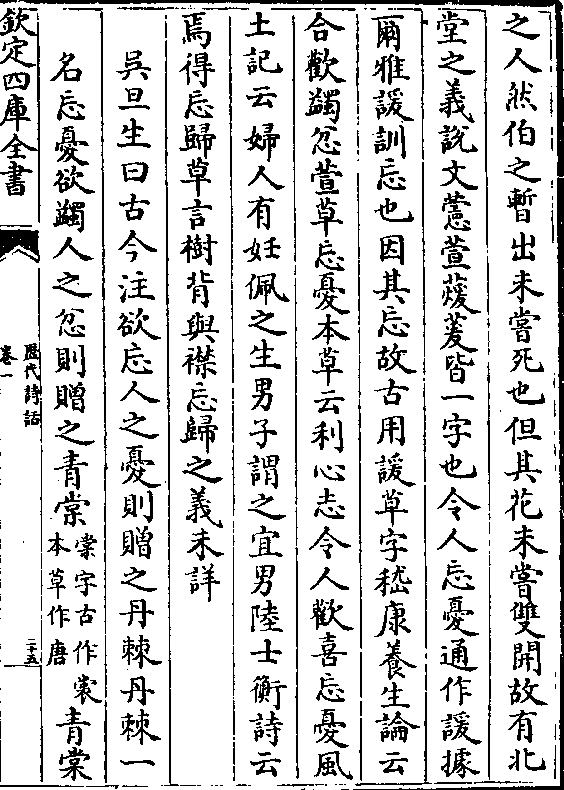 之人然伯之暫出未嘗死也但其花未嘗雙開故有北
堂之義說文藼萱蕿萲皆一字也令人忘憂通作諼據
爾雅諼訓忘也因其忘故古用諼草字嵇康養生論云
合歡蠲忿萱草忘憂本草云利心志令人歡喜忘憂風
土記云婦人有妊佩之生男子謂之宜男陸士衡詩云
焉得忘歸草言樹背與襟忘歸之義未詳
吳旦生曰古今注欲忘人之憂則贈之丹棘丹棘一
名忘憂欲蠲人之忿則贈之青棠棠字古作裳本草作唐青棠
欽定四庫全書
歷代詩話
卷一
二十五